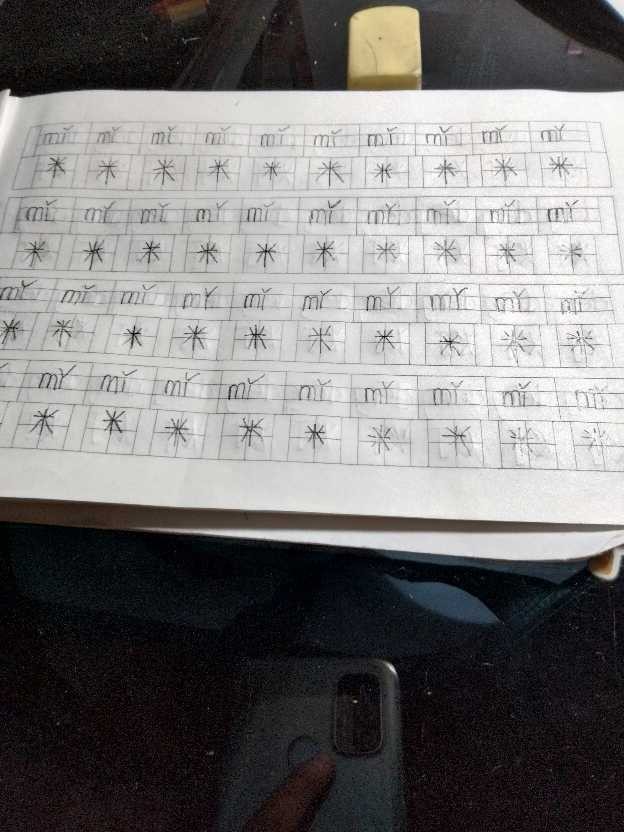 mǐ mǐ mǐ mǐ mǐ mǐ mǐ mǐ mǐ mǐ
米 米 米 米 米 米 米 米 米 米
mǐ mǐ mǐ mǐ mǐ mǐ mǐ mǐ mǐ mǐ
米 米 米 米 米 米 米 米 米 米
mǐ mǐ mǐ mǐ mǐ mǐ mǐ mǐ mǐ mǐ
米 米 米 米 米 米 米 米 米 米
mǐ mǐ mǐ mǐ mǐ mǐ mǐ mǐ mǐ
米 米 米 米 米 米 米 米 米